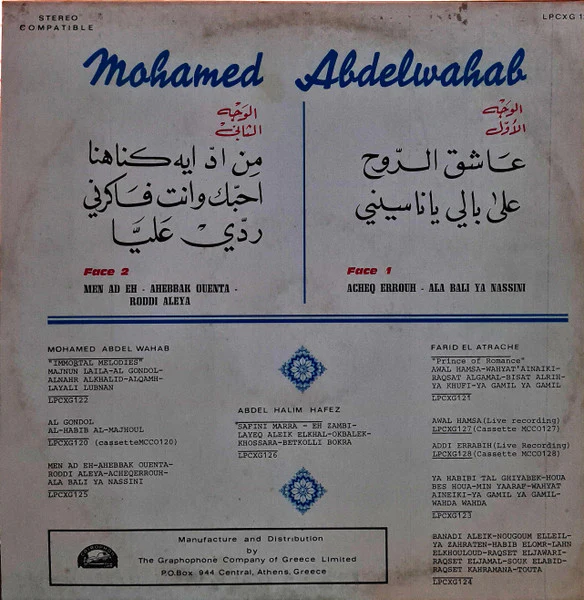 STEREO
COMPATIBLE
LPCXG 12
Mohamed Abdelwahab
الوَجْه
الأوّل
عَاشق الرّوح
على بالي يا ناسيني
Face 1
ACHEQ ERROUH - ALA BALI YA NASSINI
الوَجْه
الثاني
مِن ادّ ايه كناهنا
احبّك وانت فاكرني
ردّي عَليّا
Face 2
MEN AD EH - AHEBBAK OUENTA -
RODDI ALEYA
MOHAMED ABDEL WAHAB
"IMMORTAL MELODIES"
MAJNUN LAILA-AL GONDOL-
ALNAHR ALKHALID-ALQAMH-
LAYALI LUBNAN
LPCXG122
AL GONDOL
AL-HABIB AL-MAJHOUL
LPCXG120 (cassetteMCCO120)
MEN AD EH-AHEBBAK OUENTA-
RODDI ALEYA-ACHEQERROUH-
ALA BALI YA NASSINI
LPCXG125
ABDEL HALIM HAFEZ
SAFINI MARRA - EH ZAMBI-
LAYEQ ALEIK ELKHAL-OKBALEK-
KHOSSARA-BETKOLLI BOKRA
LPCXG126
FARID EL ATRACHE
"Prince of Romance"
AWAL HAMSA-WAHYAT'AINAIKI-
RAQSAT ALGAMAL-BISAT ALRIH-
YA KHUFI-YA GAMIL YA GAMIL
LPCXG121
AWAL HAMSA(Live recording)
LPCXG127(Cassette MCCO127)
ADDI ERRABIH(Live Recording)
LPCXG128(Cassette MCCO128)
YA HABIBI TAL GHIYABEK-HOUA
BES HOUA-MIN YAARAF-WAHYAT
AINEIKI-YA GAMIL YA GAMIL-
WAHDA WAHDA
LPCXG123
BANADI ALEIK-NOUGOUM ELLEIL-
YA ZAHRATEN-HABIB ELOMR-LAHN
ELKHOULOUD-RAQSET ELJAWARI-
RAQSET ELJEMAL-SOUK ELABID-
RAQSET KAHRAMANA-TOUTA
LPCXG124
Manufacture and Distribution
by
The Graphophone Company of Greece Limited
P.O.Box 944 Central, Athens, Greece